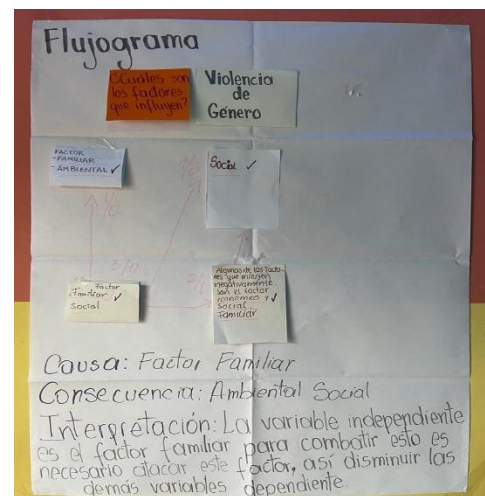 Flujograma
¿Cuáles son
los factores
que influyen?
Violencia
de
Género
FACTOR
-FAMILIAR
-AMBIENTAL ✓
Social ✓
1/0
2/0
3/0
Factor
Familiar ✓
Social
Algunos de los facto-
res que influyen
negativamente
son el factor
economico y ✓
Social
Familiar
Causa: Factor Familiar
Consecuencia: Ambiental Social
Interpretación: La variable independiente
es el factor familiar para combatir esto es
necesario atacar este factor, así disminuir las
demás variables dependiente.